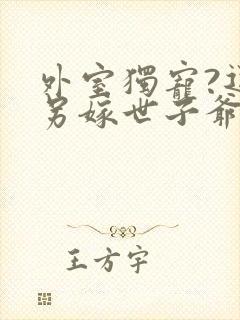 外室獨寵?
另嫁世子爺
王方宇